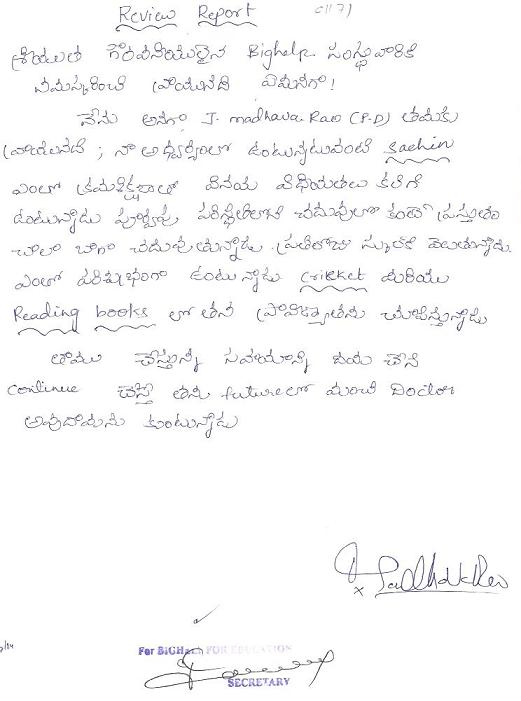 Review Report
శ్రీయుత గౌరవనీయులైన Bighelp సంస్థవారికి
నమస్కరించి వ్రాయునది ఏమనగా!
నేను అనగా J. madhava Rao (P.D) తమకు
వ్రాయునది ; నా అధ్వర్యంలో ఉంటున్నటువంటి Sachin
ఎంతో క్రమశిక్షణతో వినయ విధేయతలు కలిగి
ఉంటున్నాడు పూర్వపు పరిస్థితికంటే చదువులో కూడా ప్రస్తుతం
చాలా బాగా చదువుతున్నాడు. ప్రతిరోజు స్కూలుకి వెలుతున్నాడు.
ఎంతో పరిశుభ్రంగా ఉంటున్నాడు Cricket మరియు
Reading books లో తన ప్రావిణ్యతను చూపిస్తున్నాడు
తాము చేస్తున్న సహాయాన్ని దయ చేసి
continue చేస్తే తను future లో మంచి Doctor
అవుదామను కుంటున్నాడు
For BIGHelp FOR EDUCATION
SECRETARY